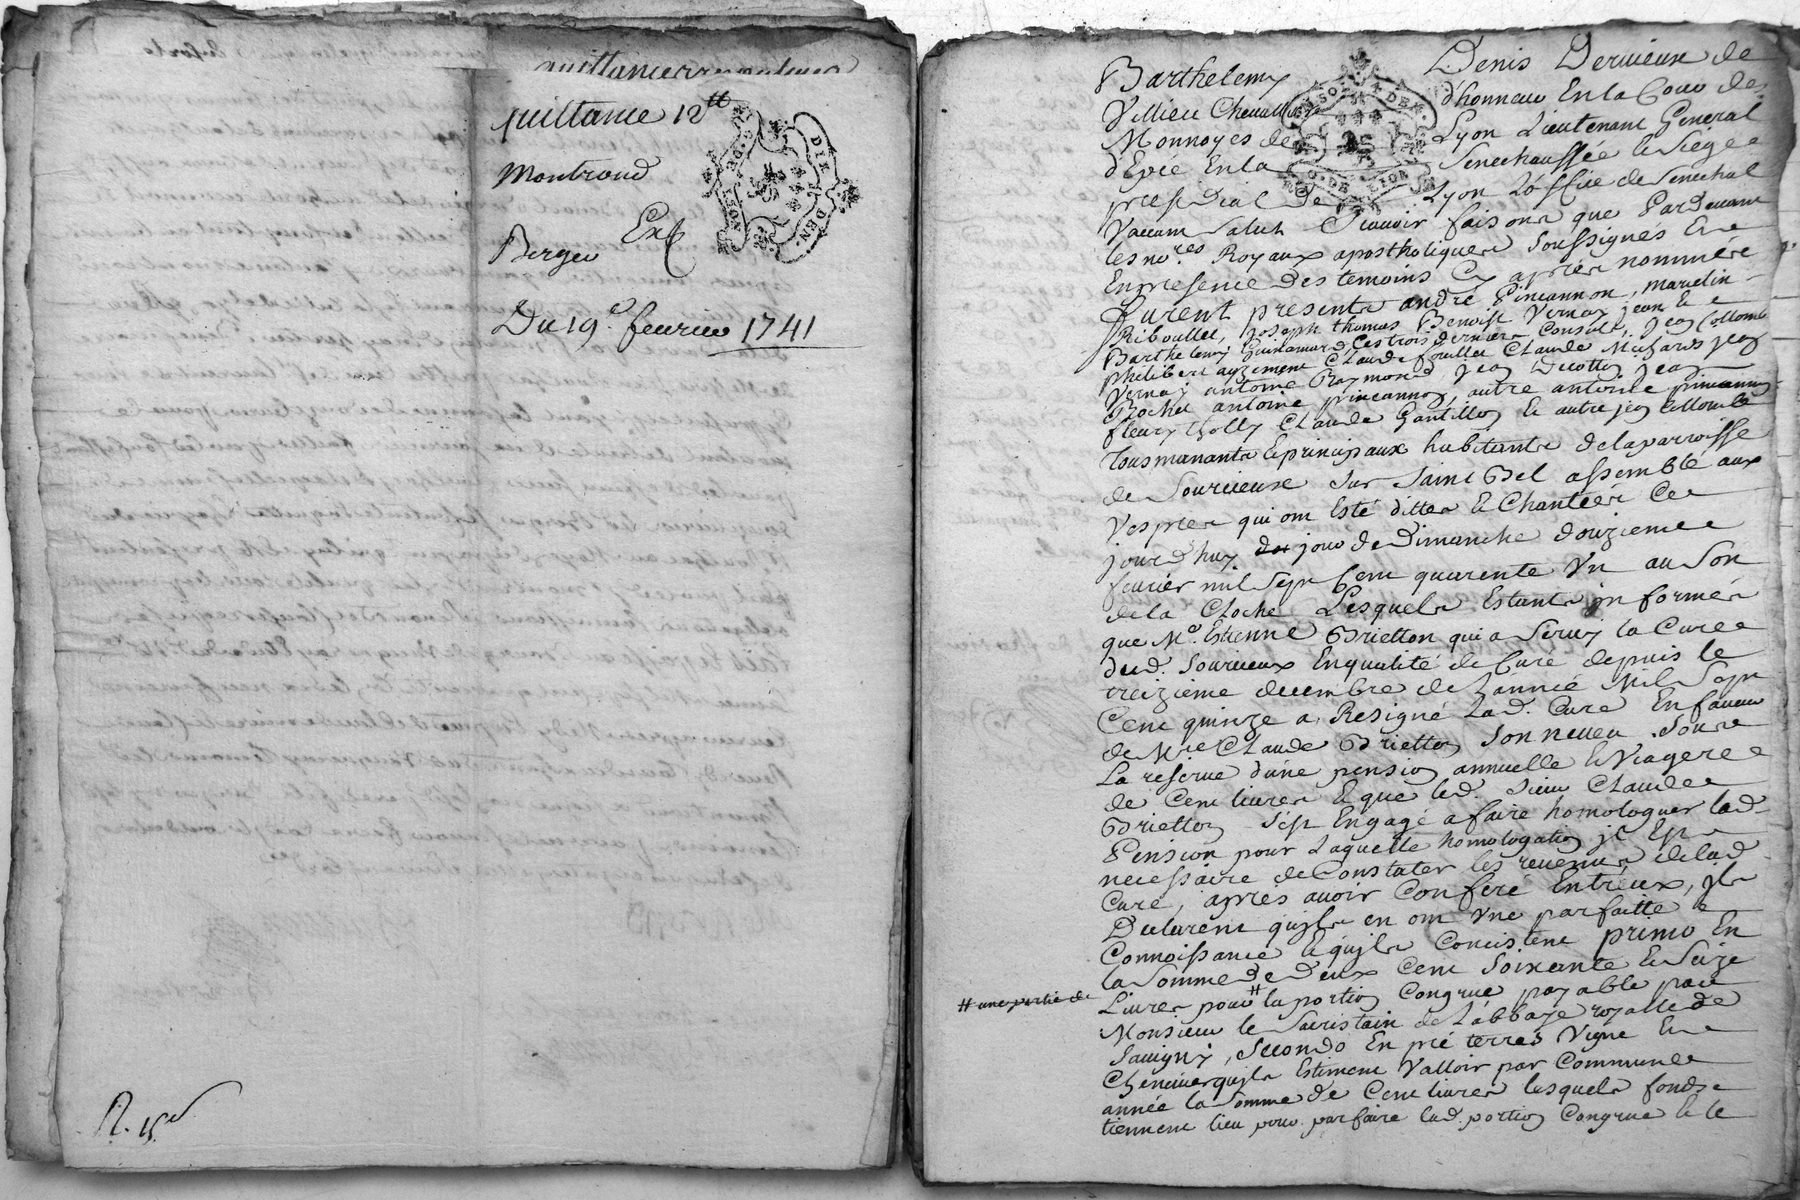 quittance 12tt
Montrond
Exp
Berger
Du 19e. feurier 1741
R. 15 s
Barthelemy Denis Deruieux de
Villieu Cheuallier d'honneur En la Cour des
Monnoyes de Lyon Lieutenant General
d'Epée En la Senechaussée & Siege
presidial de Lyon L'office de Senechal
Vaccant Salut Scauoir faisons que Pardeuant
les no.res Royaux apostholiques Soussignés Et
En presence des temoins Cy aprés nommés
furent presents andré Pincannon, marcelin
Riboullet, Joseph thomas Benoist Vernay jean &
Barthelemy Guillamard Ces trois derniers Consuls, Jean Collomb
philibert Claude fouillet Claude Jean
Vernay antoine Raymond Jean Jean
Rochu antoine pincannon, autre antoine pincannon
fleury Claude Gantillon & autre jean Collomb
Tous manants & principaux habitants de la parroisse
de Sourcieux Sur Saint Bel assemblé aux
Vespres qui ont Esté dittes & Chantéés Ce
jourd'huy jour de Dimanche douzieme
feurier mil Sept Cent quarente Vn au Son
de la Cloche Lesquels Estants jnformés
que Me. Estienne Brietton qui a Seruy la Cure
dud. Sourcieux En qualité de Curé depuis le
treizieme decembre de L'année Mil Sept
Cent quinze a Resigné Lad. Cure En faueur
de Mre Claude Brietton Son neueu Sous
La reserue d'une pension annuelle & Viagere
de Cent liures & que led. Sieur Claude
Brietton S'est Engagé a faire homologuer lad.
Pension pour Laquelle homologation jl Est
necessaire de Constater les reuenus de lad.
Cure, aprés auoir Conferé Entr'eux, jls
Declarent qu'jls en ont Vne parfaitte
Connoissance & qu'jls Concistent primo En
la Somme de Deux Cent Soixante & Seize
# une partie de
Liures pour # la portion Congrue payable par
Monsieur le Sacristain de L'abbaye royalle de
Sauigny, Secondo En pré terres Vigne &
Cheneuier qu'jls Estiment Valloir par Commune
année la Somme de Cent liures lesquels fonds
tiennent lieu pour parfaire lad. portion Congrue & le